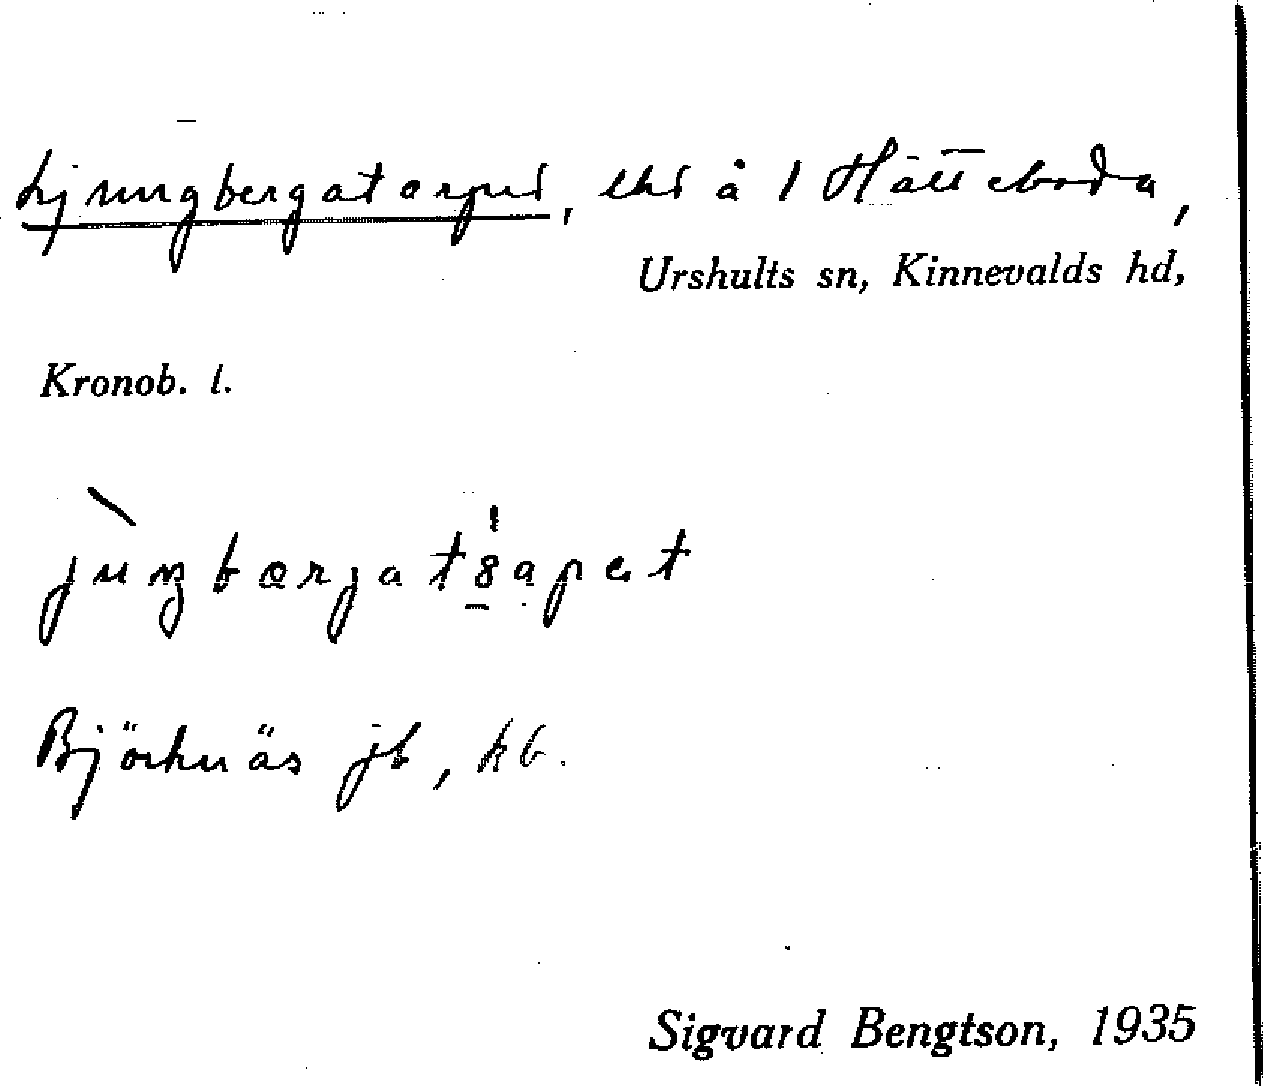 Ljungbergatorpet, lht å 1 Hätteboda,
Urshults sn, Kinnevalds hd,
Kronob. l.
Björknäs jb, kb.
Sigvard Bengtson, 1935